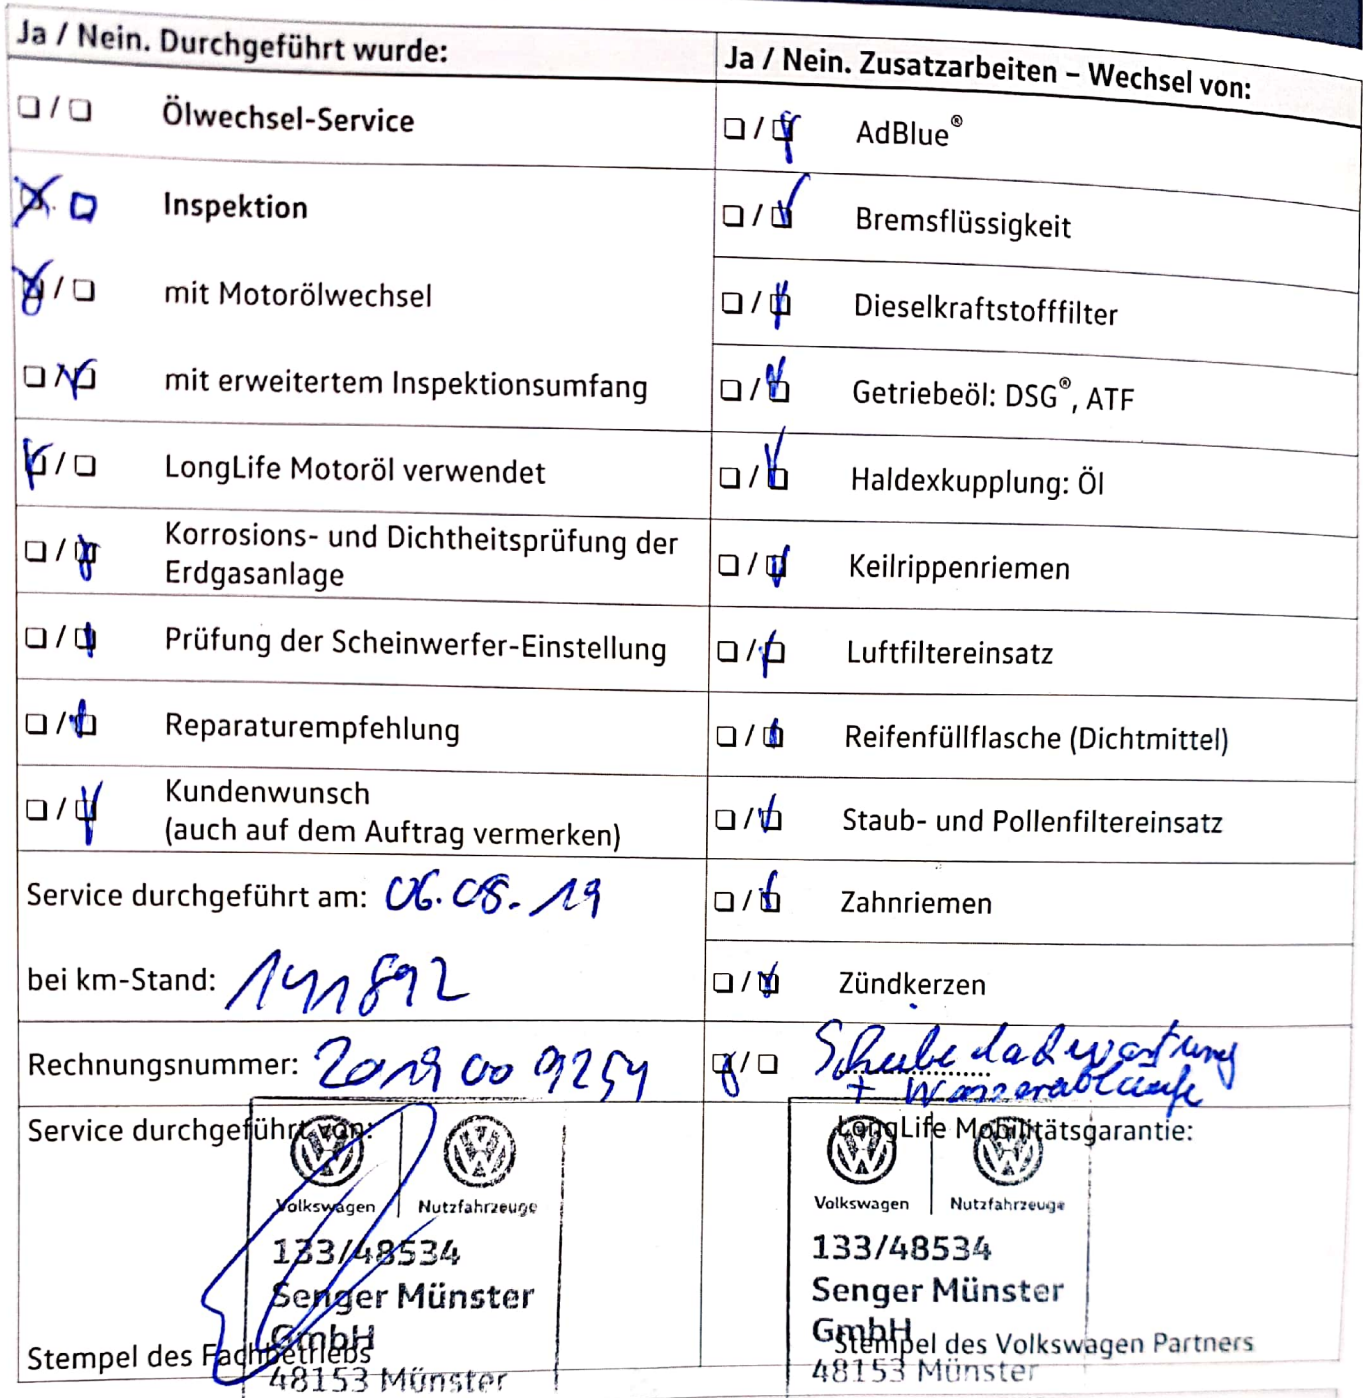 Ja / Nein. Durchgeführt wurde:
Ölwechsel-Service
Inspektion
mit Motorölwechsel
mit erweitertem Inspektionsumfang
LongLife Motoröl verwendet
Korrosions- und Dichtheitsprüfung der
Erdgasanlage
Prüfung der Scheinwerfer-Einstellung
Reparaturempfehlung
Kundenwunsch
(auch auf dem Auftrag vermerken)
Service durchgeführt am: 06.08.19
bei km-Stand: 141892
Rechnungsnummer: 2019 00 9254
Service durchgeführt von:
Volkswagen Nutzfahrzeuge
133/48534
Senger Münster
GmbH
Stempel des Fachbetriebs
48153 Münster
Ja / Nein. Zusatzarbeiten – Wechsel von:
AdBlue®
Bremsflüssigkeit
Dieselkraftstofffilter
Getriebeöl: DSG®, ATF
Haldexkupplung: Öl
Keilrippenriemen
Luftfiltereinsatz
Reifenfüllflasche (Dichtmittel)
Staub- und Pollenfiltereinsatz
Zahnriemen
Zündkerzen
+ Wasserabläufe
LongLife Mobilitätsgarantie:
Volkswagen Nutzfahrzeuge
133/48534
Senger Münster
GmbH
Stempel des Volkswagen Partners
48153 Münster